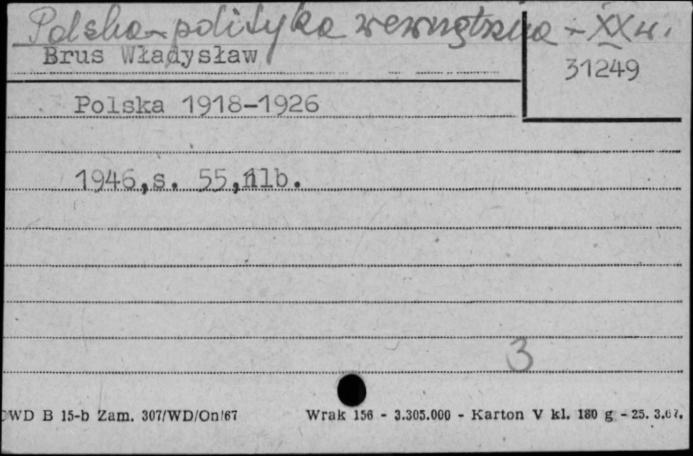 Polska - polityka wewnętrzna - XX w.
Brus Władysław
31249
Polska 1918-1926
1946,s. 55,nlb.
3
DWD B 15-b Zam. 307/WD/On/67
Wrak 156 - 3.305.000 - Karton V kl. 180 g - 25. 3.67.